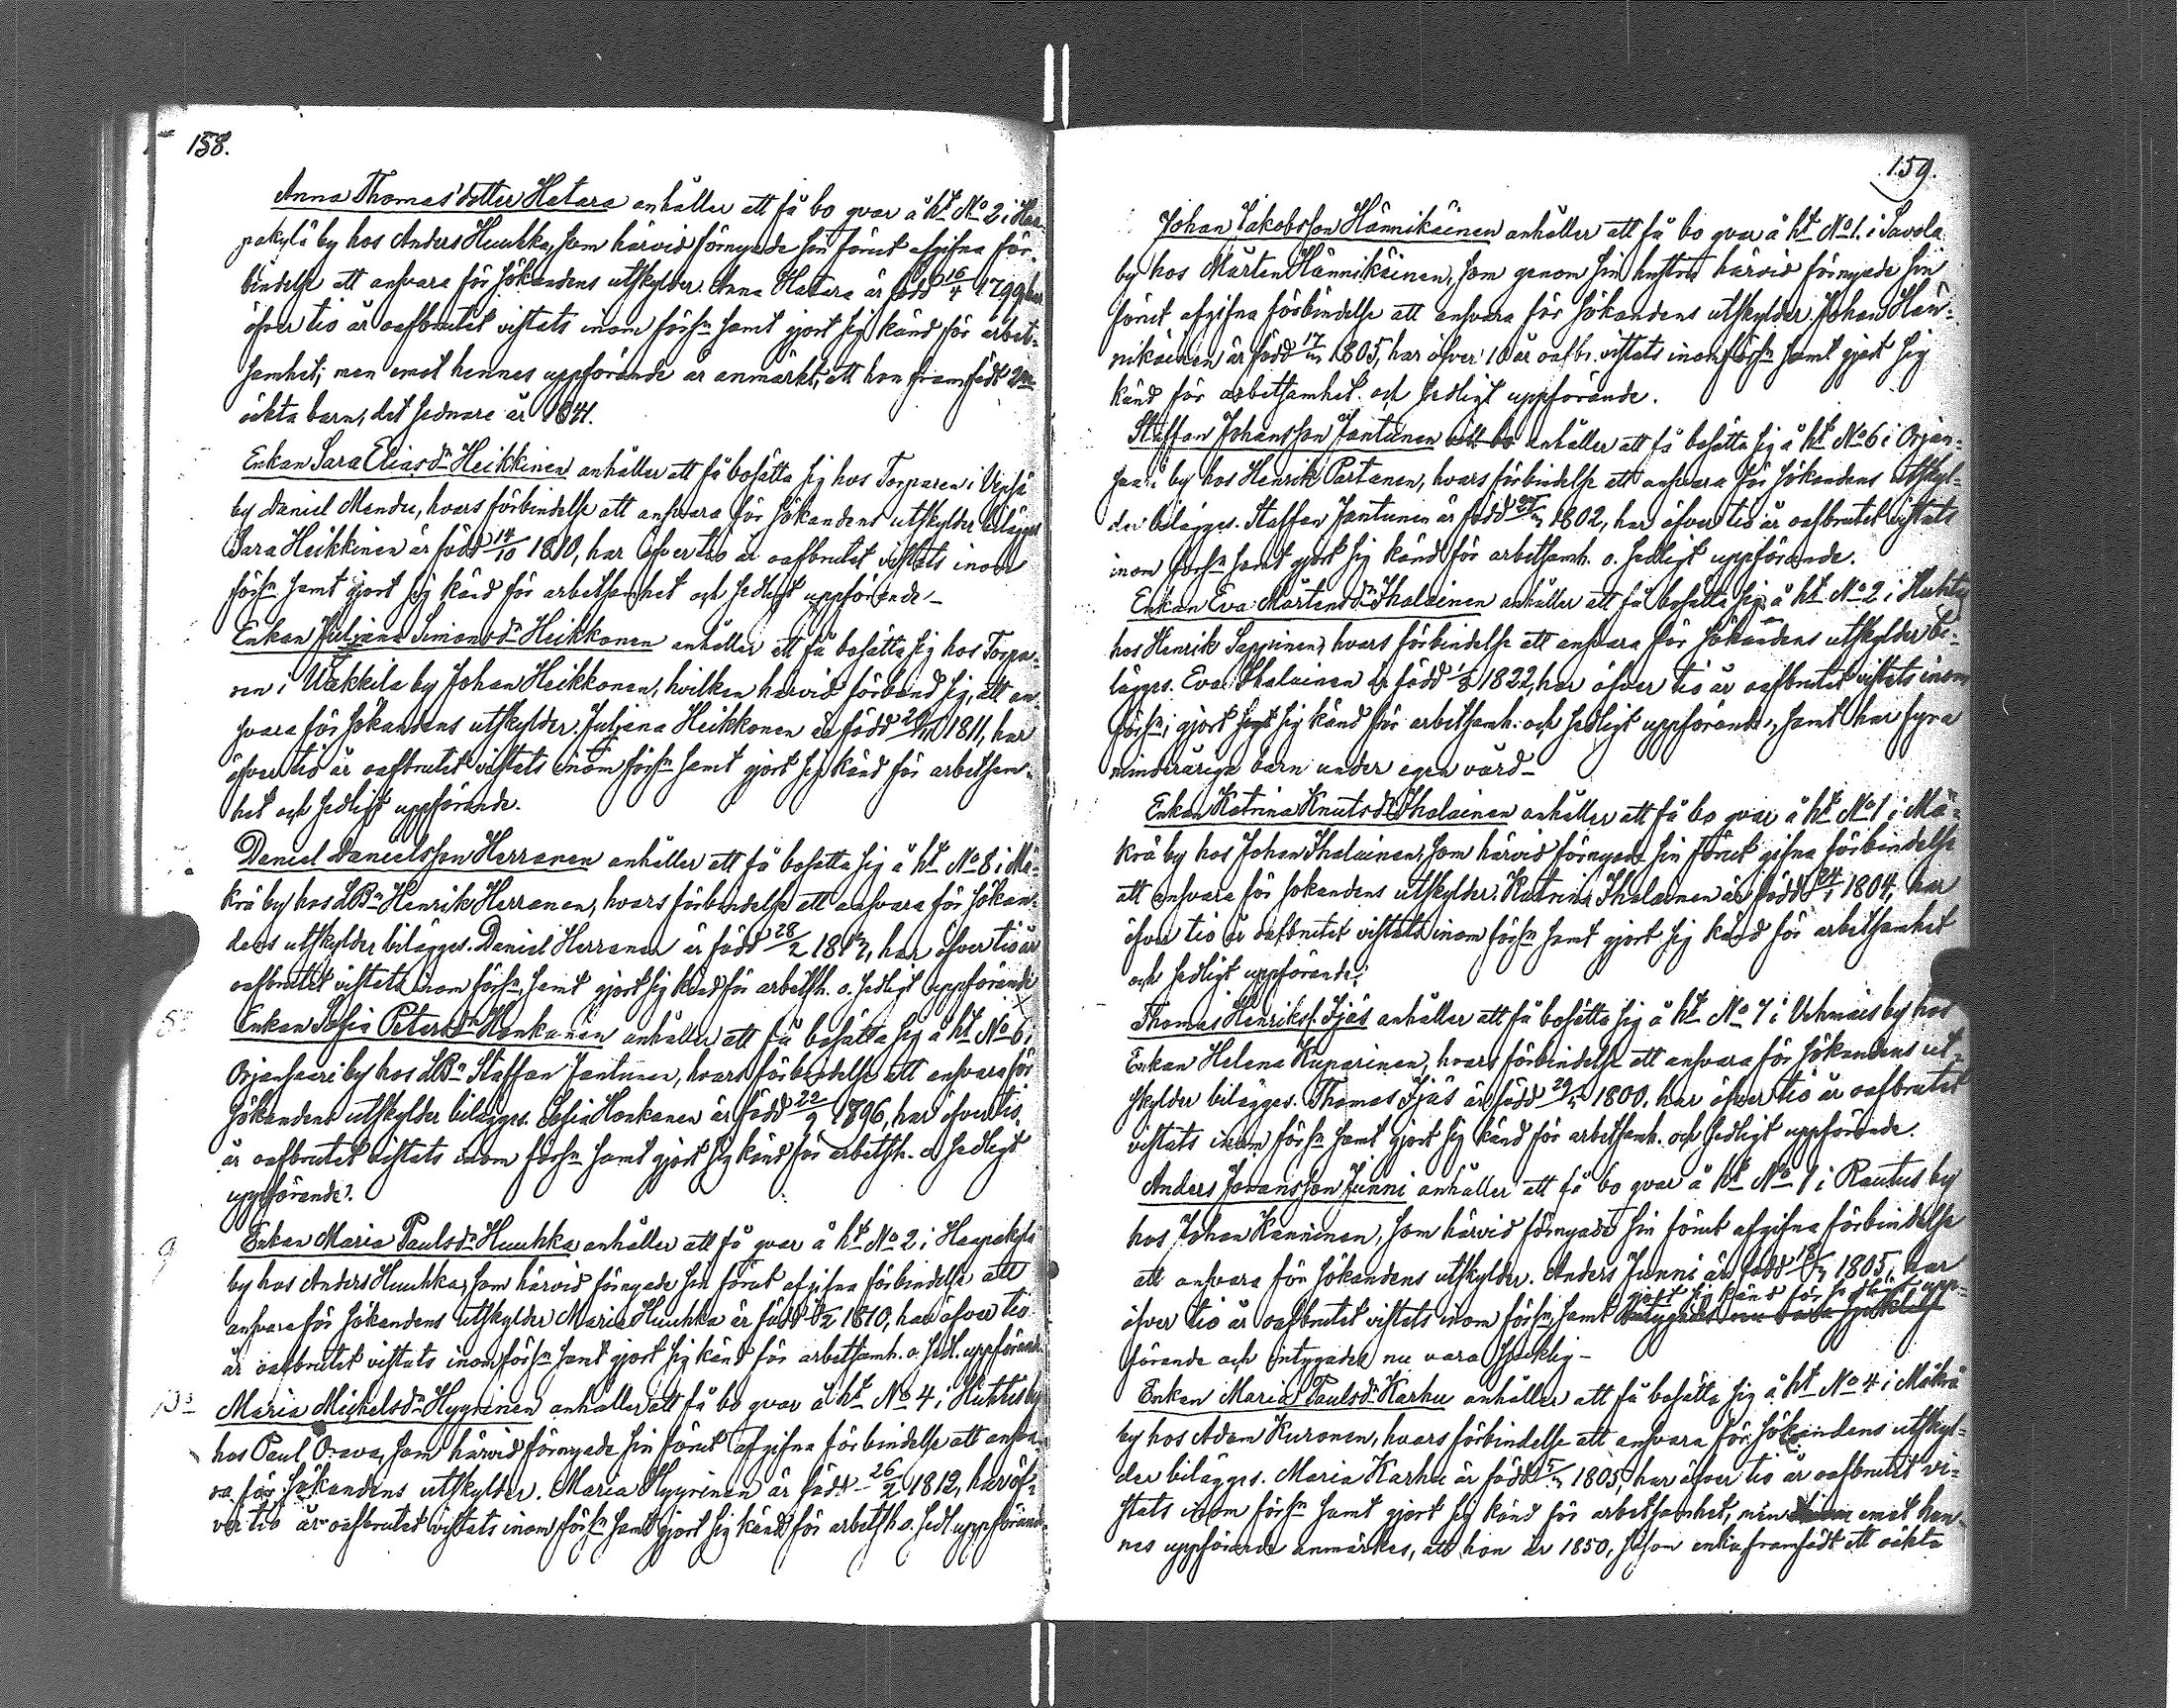 158.
Anna Thomas'dotter Hatara anhåller att få bo qvar å ht No 2 i Haa-
pakylä by hos Anders Huuhka, som härvid förnyade sin förut afgifna för-
bindelse att ansvara för sökandens utskylder. Anna Hatara är född 16/4 1799, har
öfver tio år oafbrutet vistats inom försn samt gjort sig känd för arbet-
samhet; men emot hennes uppförande är anmärkt, att hon framfödt
oäkta barn, det sednare år 1841.
Enkan Sara Eliasdr Heikkinen anhåller att få bosätta sig hos Torparen i
by Daniel Mendu, hvars förbindelse att ansvara för sökandens utskylder bilägges
Sara Heikkinen är född 14/10 1810, har öfver tio år oafbrutet vistats inom
försn samt gjort sig känd för arbetsamhet och sedligt uppförande –
Enkan Juljana Simonsdr Heikkonen anhåller att få bosätta sig hos Torpa-
ren i Wäkkilä by Johan Heikkonen, hvilken härvid förband sig, att an-
svara för sökandens utskylder. Juljana Heikkonen är född 1811, har
öfver tio år oafbrutet vistats inom försn samt gjort sig känd för arbetsam-
het och sedligt uppförande.
Daniel Danielsson Herranen anhåller att få bosätta sig å ht No 8 i Mä-
krä by hos LBn Henrik Herranen, hvars förbindelse att ansvara för sökan-
dens utskylder bilägges. Daniel Herranen är född 28/2 har öfver tio år
oafbrutet vistats inom försn, samt gjort sig känd för arbetsh. o. sedligt uppförande
Enkan Sofia Petersdr Honkanen anhåller att få bosätta sig å ht No 6 i
Orjansaari by hos LBn Staffan Jantunen, hvars förbindelse att ansvara för
sökandens utskylder bilägges. Sofia Honkanen är född 1796, har öfver tio
år oafbrutet vistats inom försn samt gjort sig känd för arbetsh. o sedligt
uppförande.
Enkan Maria Paulsdr Huuhka anhåller att få qvar å ht No 2 i Haapakylä
by hos Anders Huuhka, som härvid förnyade sin förut afgifna förbindelse att
ansvara för sökandens utskylder Maria Huuhka är född 1810, har öfver tio
år oafbrutet vistats inom försn samt gjort sig känd för arbetsamh. o. sedl. uppförande
Maria Michelsdr Hyyrinen anhåller att få bo qvar å ht No 4 i Huhtis by
hos Paul Orava, som härvid förnyade sin förut afgifna förbindelse att ansva-
ra för sökandens utskylder. Maria Hyyrinen är född 26/2 1812, har öf-
ver tio år oafbrutet vistats inom försn samt gjort sig känd för arbetsh o. sedl. uppförande
159.
Johan Jakobsson Hännikäinen anhåller att få bo qvar å ht No 1. i Savola
by hos Mårten Hännikäinen, som genom sin hustru härvid förnyade sin
förut afgifna förbindelse att ansvara för sökandens utskylder. Johan Hän-
nikäinen är född 1805, har öfver 10 år oafbr. vistats inom försn samt gjort sig
känd för arbetsamhet och sedligt uppförande.
Staffan Johansson Jantunen anhåller att få bosätta sig å ht No 6 i Orjan-
saari by hos Henrik Partanen, hvars förbindelse att ansvara för sökandens utskyl-
der bilägges. Staffan Jantunen är född 1802, har öfver tio år oafbrutet vistats
inom försn samt gjort sig känd för arbetsamh. o. sedligt uppförande.
Enkan Eva Mårtensdr Ihalainen anhåller att få bosätta sig å ht No 2 i Huhtis
hos Henrik Sappinen, hvars förbindelse att ansvara för sökandens utskylder bi-
lägges. Eva Ihalainen är född 1822, har öfver tio år oafbrutet vistats inom
försn, gjort sig känd för arbetsamh. och sedligt uppförande, samt har fyra
minderåriga barn under egen vård –
Enkan Katrina Knutsdr Ihalainen anhåller att få bo qvar å ht No 1 i Mä-
krä by hos Johan Ihalainen, som härvid förnyade sin förut gifna förbindelse
att ansvara för sökandens utskylder. Katrina Ihalainen är född 24/1 1804, har
öfver tio år oafbrutet vistats inom försn samt gjort sig känd för arbetsamhet
och sedligt uppförande.
Thomas Henrikss. Ijäs anhåller att få bosätta sig å ht No 7 i Vehmais by hos
Enkan Helena Kuparinen, hvars förbindelse att ansvara för sökandens ut-
skylder bilägges. Thomas Ijäs är född 1800, har öfver tio år oafbrutet
vistats inom försn samt gjort sig känd för arbetsamh. och sedligt uppförande.
Anders Johansson Junni anhåller att få bo qvar å ht No 1 i Rautus by
hos Johan Kanninen, som härvid förnyade sin förut afgifna förbindelse
att ansvara för sökandens utskylder. Anders Junni är född 1805, har
öfver tio år oafbrutet vistats inom försn samt gjort sig känd för sedligt upp-
förande och intygades nu vara sjuklig –
Enkan Maria Paulsdr Karhu anhåller att få bosätta sig å ht No 4 i Mäkrä
by hos Adam Kuronen, hvars förbindelse att ansvara för sökandens utskyl-
der bilägges. Maria Karhu är född 1805, har öfver tio år oafbrutet vi-
stats inom försn samt gjort sig känd för arbetsamhet, men emot hen-
nes uppförande anmärkes, att hon år 1850, såsom enka framfödt ett oäkta